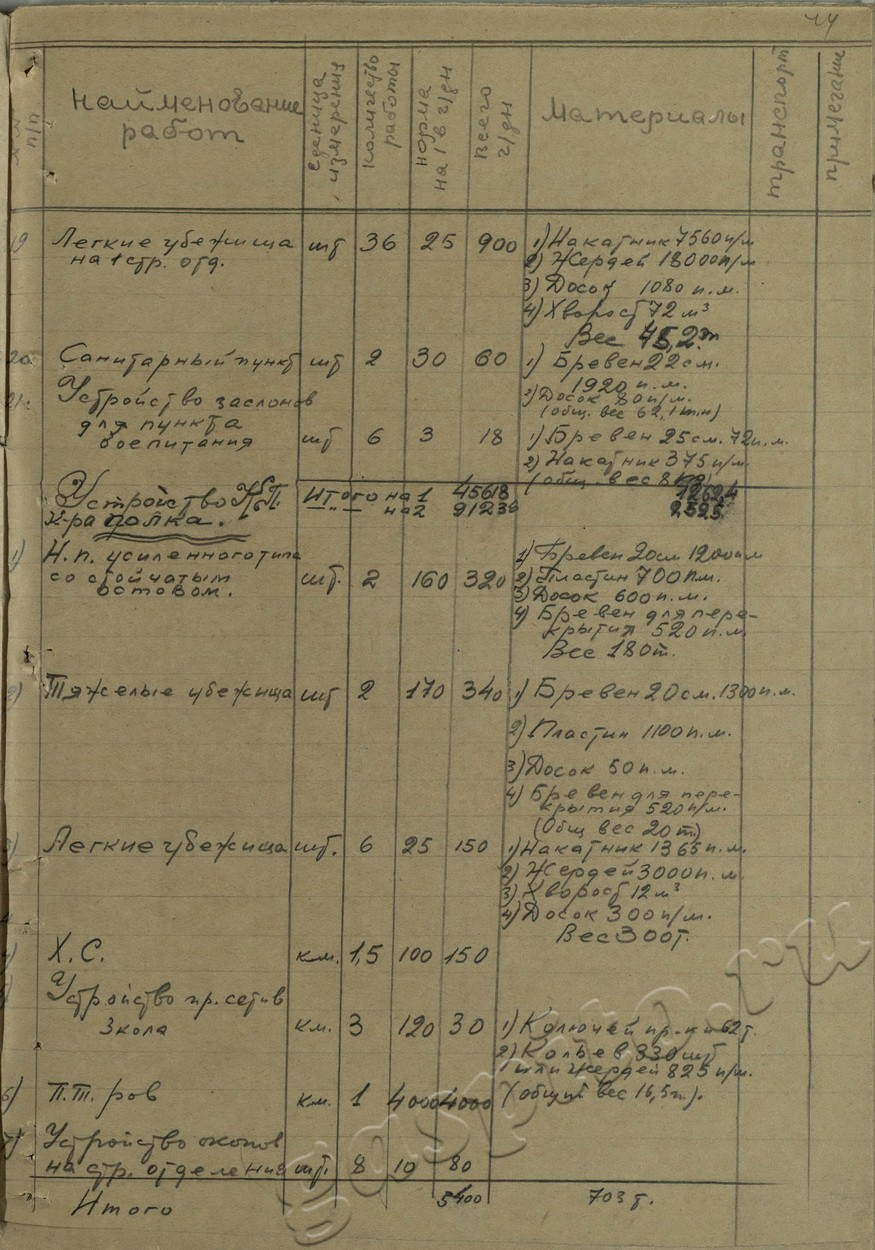 44
№ № п/п
Наименование работ
единица измерения
количество работы
норма на 1 в ч/дн
всего ч/дн
Материалы
транспорт
примечание
19 Легкие убежища шт 36 25 900 1) Накатник 7560 п/м
на 1 стр. отд. 2) Жердей 18000 п/м
3) Досок 1080 п.м.
4) Хворост 72 м³
Вес 45,2т
20 Санитарный пункт шт 2 30 60 1) Бревен 22 см.
1920 п.м.
21. Устройство заслонов 2) Досок 80 п/м.
для пункта (общ. вес 62,1 тн)
боепитания шт 6 3 18 1) Бревен 25 см. 72 п.м.
2) Накатник 375 п/м.
(общ. вес
Устройство К.П. Итого на 1 45618 1262,4
к-ра полка. —"— на 2 91236 2525
1) Н.п. усиленного типа 1) Бревен 20 см 1200 пм
со стойчатым шт. 2 160 320 2) Пластин 700 п.м.
остовом. 3) Досок 600 п.м.
4) Бревен для пере-
крытия 520 п.м
Вес 180т.
2) Тяжелые убежища шт 2 170 340 1) Бревен 20 см. 1300 п.м.
2) Пластин 1100 п.м.
3) Досок 50 п.м.
4) Бревен для пере-
крытия 520 п/м.
(Общ вес 20 т.)
3) Легкие убежища шт. 6 25 150 1) Накатник 1365 п.м.
2) Жердей 3000 п.м.
3) Хворост 12 м³
4) Досок 300 п/м.
Вес 300т.
4) Х.С. км. 1,5 100 150
5) Устройство пр. сети в
3 кола км. 3 120 30 1) Колючей пр-ки 62 т.
2) Кольев 830 шт
или жердей 825 п/м.
6) П.Т. ров км. 1 4000 4000 (общий вес 16,5 т).
7) Устройство окопов
на стр. отделения шт. 8 10 80
Итого 5400 703 т.